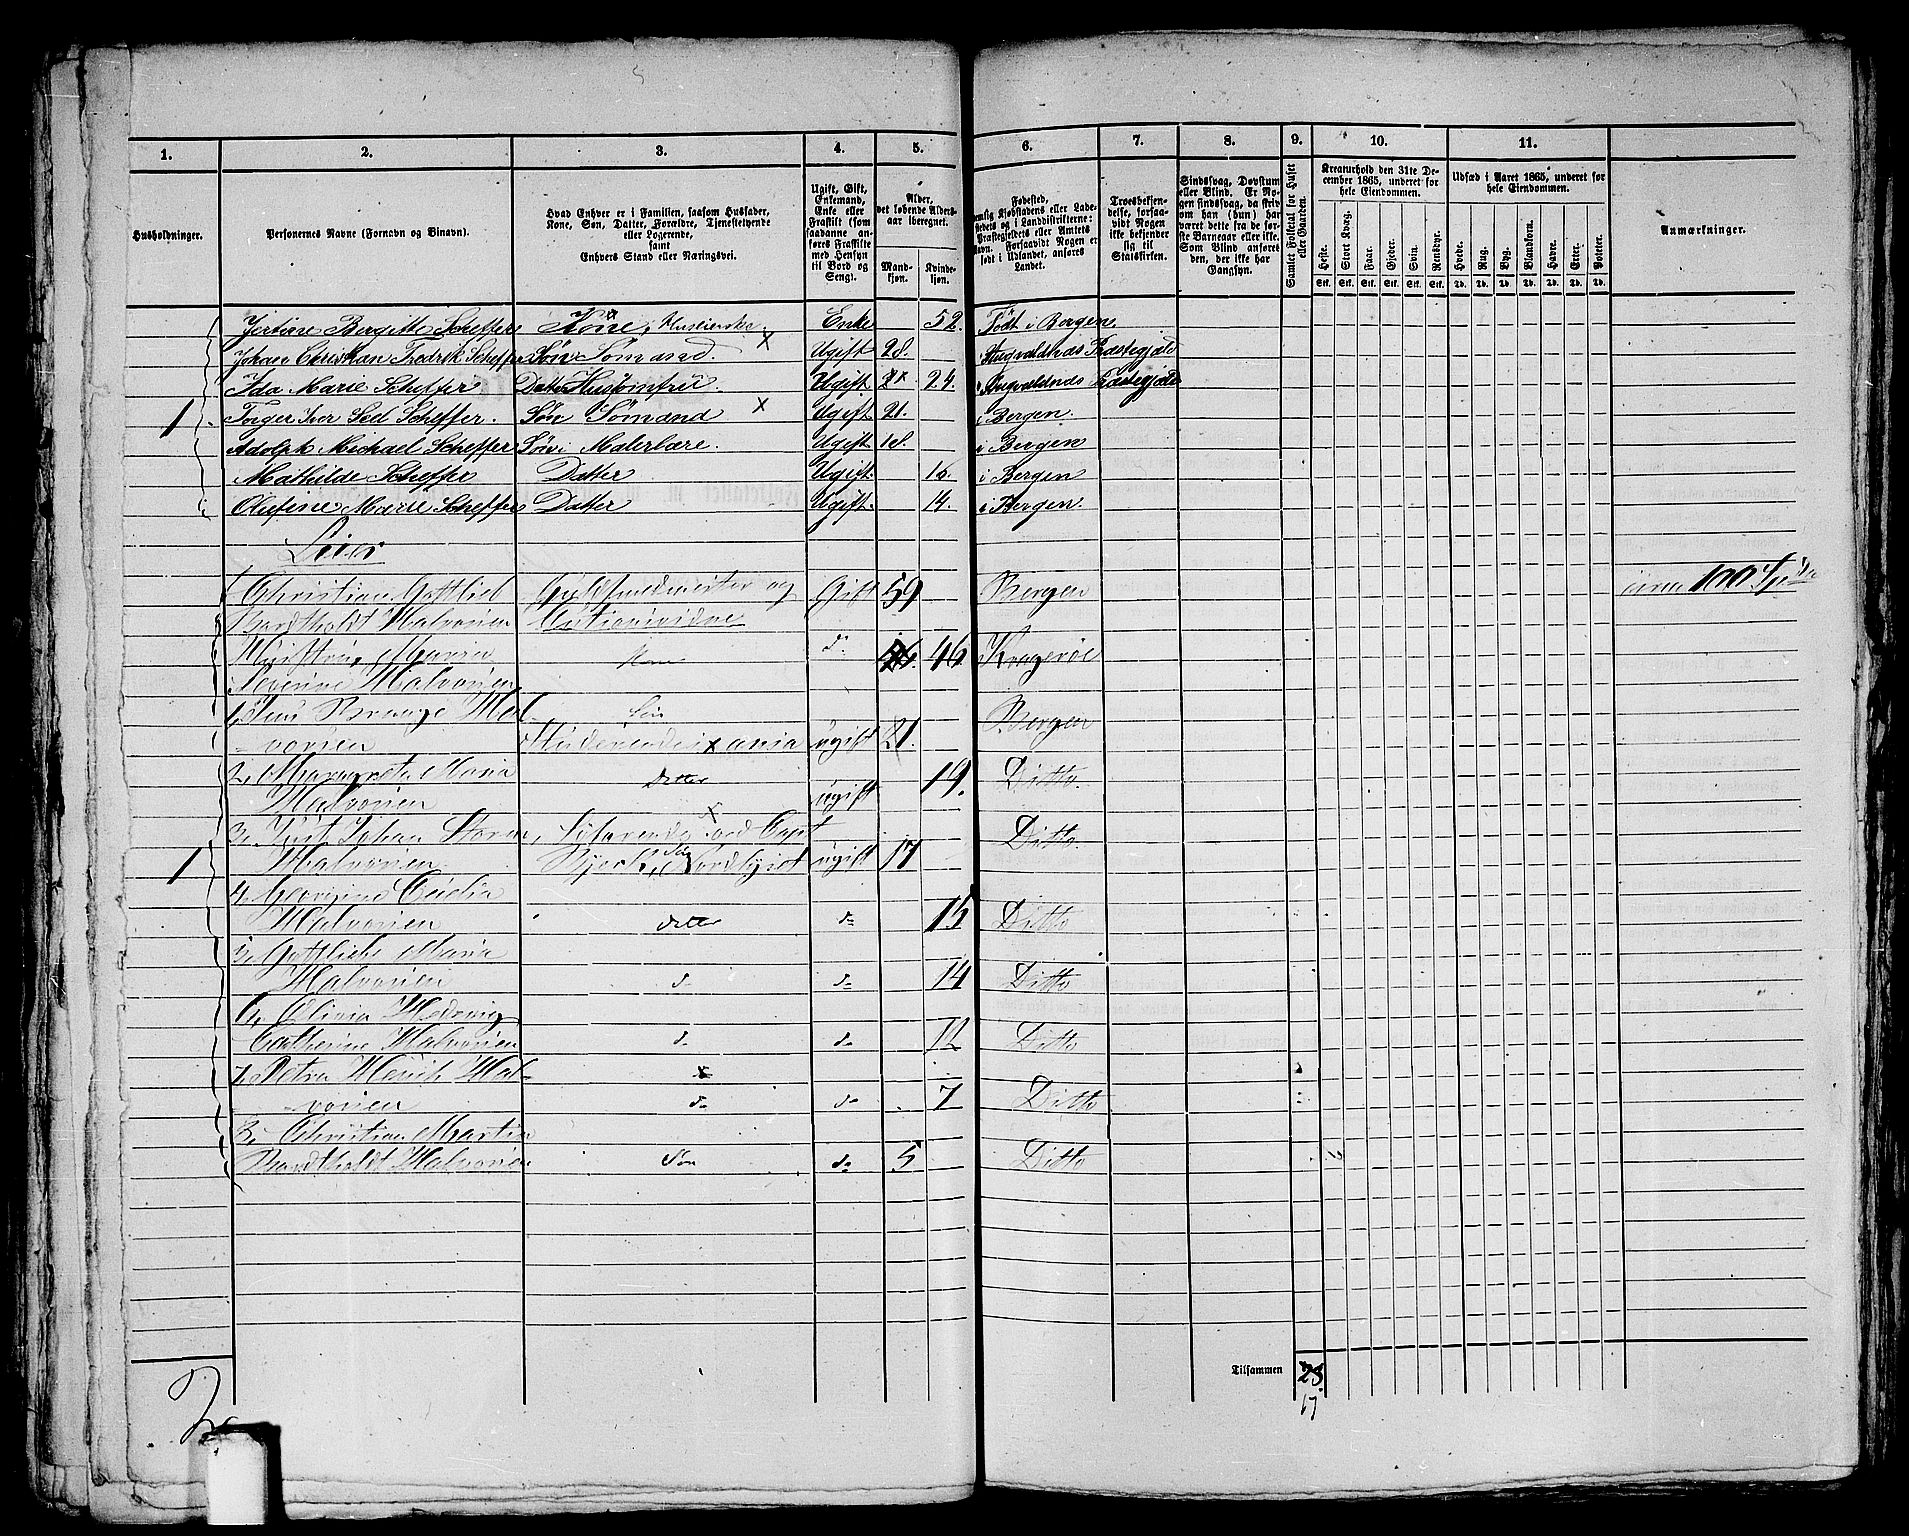 1. 2. 3. 4. 5. 6. 7. 8. 9. 10. 11.
Husholdninger.
Personernes Navne (Fornavn og Binavn).
Hvad Enhver er i Familien, saasom Husfader,
Kone, Søn, Datter, Forældre, Tjenestetyende
eller Logerende,
samt
Enhvers Stand eller Næringsvei.
Ugift, Gift,
Enkemand,
Enke eller
Fraskilt (som
saadanne an-
føres Fraskilte
med Hensyn
til Bord og
Seng).
Alder,
det løbende Alders-
aar iberegnet.
Mand-
kjøn.
Kvinde-
kjøn.
Fødested,
nemlig Kjøbstadens eller Lade-
stedets og i Landdistrikterne:
Præstegjeldets eller Amtets
Navn. Forsaavidt Nogen er
født i Udlandet, anføres
Landet.
Troesbekjen-
delse, forsaa-
vidt Nogen
ikke bekjender
sig til
Statskirken.
Sindssvag, Døvstum
eller Blind. Er No-
gen sindssvag, da skri-
ves om han (hun) har
været dette fra de før-
ste Barneaar eller ikke.
Som Blind anføres
den, der ikke har
Gangsyn.
Samlet Folketal for Huset
eller Gaarden.
Kreaturhold den 31te De-
cember 1865, underet for
hele Eiendommen.
Heste. Stort Kvæg. Faar. Gjeder. Svin. Rensdyr.
Stk. Stk. Stk. Stk. Stk. Stk.
Udsæd i Aaret 1865, underet for
hele Eiendommen.
Hvede. Rug. Byg. Blandkorn. Havre. Erter. Poteter.
Td. Td. Td. Td. Td. Td. Td.
Anmærkninger.
Bergitte Scheffer Kone, Enke 52. Født i Bergen
Johan Christian Fredrik Scheffer Søn Sømand. x Ugift 28. Præstegjeld
Ida Marie Scheffer Datter Husjomfru. Ugift 24. Præstegjeld
1 Torger Iver Scheffer. Søn Sømand x Ugift 21. i Bergen.
Adolph Michael Scheffer Søn i Malerlære. Ugift 18. i Bergen
Mathilde Scheffer Datter Ugift. 16. i Bergen
Olufine Marie Scheffer Datter Ugift. 14. i Bergen.
Christian Gottlieb Guldsmedmester og Gift 59 Bergen 100
Bardtholdt Halvorsen
Maria Kone d° 46 Kragerøe
Severine Halvorsen
1, Jens Hal- Søn Bergen
vorsen x ugift 21.
2, Margreta Maria Datter 19. Ditto.
Halvorsen ugift
3, Johan Storm x Capt Ditto.
1 Halvorsen Søn ugift 17
4, Georgine Cecilia
Halvorsen Datter do 15 Ditto
5, Gottliebe Maria
Halvorsen do do 14 Ditto
6, Olivia Hedevig
Catherine Halvorsen do do 12 Ditto
7, Petra Hal-
vorsen do do 7 Ditto
8, Christian Martin
Bardtholdt Halvorsen Søn do 5 Ditto
Tilsammen 23.
17